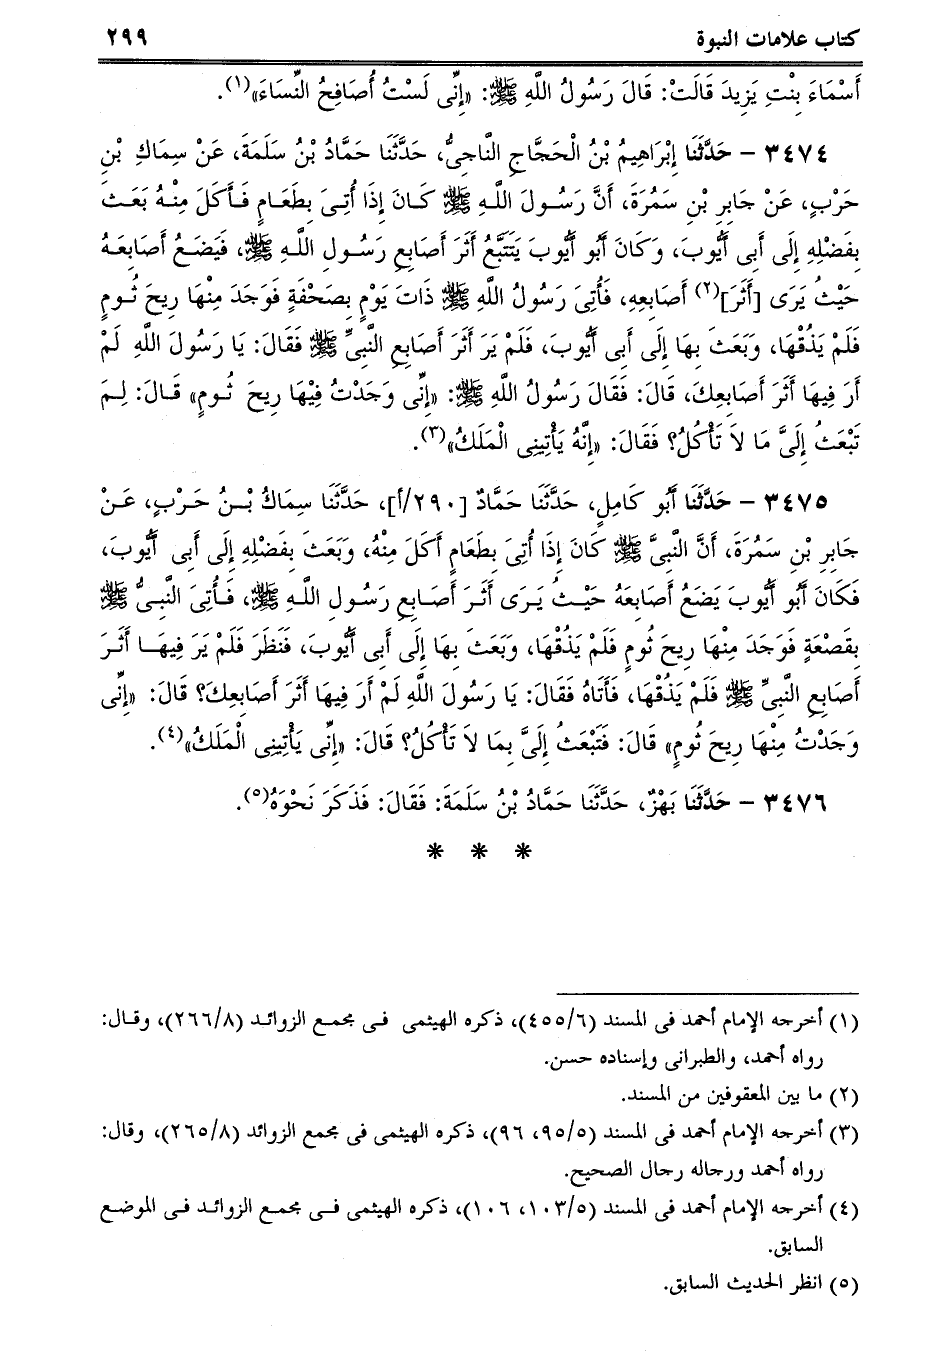 كتاب علامات النبوة ٢٩٩
أَسْمَاءَ بِنْتِ يَزِيدَ قَالَتْ: قَالَ رَسُولُ اللَّهِ ﷺ: «إِنِّى لَسْتُ أُصَافِحُ النِّسَاءَ»(١).
٣٤٧٤ - حَدَّثَنَا إِبْرَاهِيمُ بْنُ الْحَجَّاجِ النَّاجِىُّ، حَدَّثَنَا حَمَّادُ بْنُ سَلَمَةَ، عَنْ سِمَاكِ بْنِ
حَرْبٍ، عَنْ جَابِرِ بْنِ سَمُرَةَ، أَنَّ رَسُولَ اللَّهِ ﷺ كَانَ إِذَا أُتِىَ بِطَعَامٍ فَأَكَلَ مِنْهُ بَعَثَ
بِفَضْلِهِ إِلَى أَبِى أَيُّوبَ، وَكَانَ أَبُو أَيُّوبَ يَتَتَبَّعُ أَثَرَ أَصَابِعِ رَسُولِ اللَّهِ ﷺ، فَيَضَعُ أَصَابِعَهُ
حَيْثُ يَرَى [أَثَرَ](٢) أَصَابِعِهِ، فَأُتِىَ رَسُولُ اللَّهِ ﷺ ذَاتَ يَوْمٍ بِصَحْفَةٍ فَوَجَدَ مِنْهَا رِيحَ ثُومٍ
فَلَمْ يَذُقْهَا، وَبَعَثَ بِهَا إِلَى أَبِى أَيُّوبَ، فَلَمْ يَرَ أَثَرَ أَصَابِعِ النَّبِىِّ ﷺ فَقَالَ: يَا رَسُولَ اللَّهِ لَمْ
أَرَ فِيهَا أَثَرَ أَصَابِعِكَ، قَالَ: فَقَالَ رَسُولُ اللَّهِ ﷺ: «إِنِّى وَجَدْتُ فِيْهَا رِيحَ ثُومٍ» قَالَ: لِمَ
تَبْعَثُ إِلَىَّ مَا لاَ تَأْكُلُ؟ فَقَالَ: «إِنَّهُ يَأْتِينِى الْمَلَكُ»(٣).
٣٤٧٥ - حَدَّثَنَا أَبُو كَامِلٍ، حَدَّثَنَا حَمَّادٌ [٢٩٠/أ]، حَدَّثَنَا سِمَاكُ بْنُ حَرْبٍ، عَنْ
جَابِرِ بْنِ سَمُرَةَ، أَنَّ النَّبِىَّ ﷺ كَانَ إِذَا أُتِىَ بِطَعَامٍ أَكَلَ مِنْهُ، وَبَعَثَ بِفَضْلِهِ إِلَى أَبِى أَيُّوبَ،
فَكَانَ أَبُو أَيُّوبَ يَضَعُ أَصَابِعَهُ حَيْثُ يَرَى أَثَرَ أَصَابِعِ رَسُولِ اللَّهِ ﷺ، فَأُتِىَ النَّبِىُّ ﷺ
بِقَصْعَةٍ فَوَجَدَ مِنْهَا رِيحَ ثُومٍ فَلَمْ يَذُقْهَا، وَبَعَثَ بِهَا إِلَى أَبِى أَيُّوبَ، فَنَظَرَ فَلَمْ يَرَ فِيهَا أَثَرَ
أَصَابِعِ النَّبِىِّ ﷺ فَلَمْ يَذُقْهَا، فَأَتَاهُ فَقَالَ: يَا رَسُولَ اللَّهِ لَمْ أَرَ فِيهَا أَثَرَ أَصَابِعِكَ؟ قَالَ: «إِنِّى
وَجَدْتُ مِنْهَا رِيحَ ثُومٍ» قَالَ: فَتَبْعَثُ إِلَىَّ بِمَا لاَ تَأْكُلُ؟ قَالَ: «إِنِّى يَأْتِينِى الْمَلَكُ»(٤).
٣٤٧٦ - حَدَّثَنَا بَهْزٌ، حَدَّثَنَا حَمَّادُ بْنُ سَلَمَةَ: فَقَالَ: فَذَكَرَ نَحْوَهُ(٥).
* * *
(١) أخرجه الإمام أحمد فى المسند (٤٥٥/٦)، ذكره الهيثمى فى مجمع الزوائد (٢٦٦/٨)، وقال:
رواه أحمد، والطبرانى وإسناده حسن.
(٢) ما بين المعقوفين من المسند.
(٣) أخرجه الإمام أحمد فى المسند (٩٥/٥، ٩٦)، ذكره الهيثمى فى مجمع الزوائد (٢٦٥/٨)، وقال:
رواه أحمد ورجاله رجال الصحيح.
(٤) أخرجه الإمام أحمد فى المسند (١٠٣/٥، ١٠٦)، ذكره الهيثمى فى مجمع الزوائد فى الموضع
السابق.
(٥) انظر الحديث السابق.